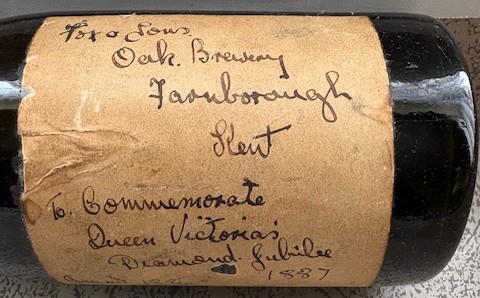 Fox & Sons
Oak Brewery
Farnborough
Kent
To Commemorate
Queen Victoria's
Diamond Jubilee
1887